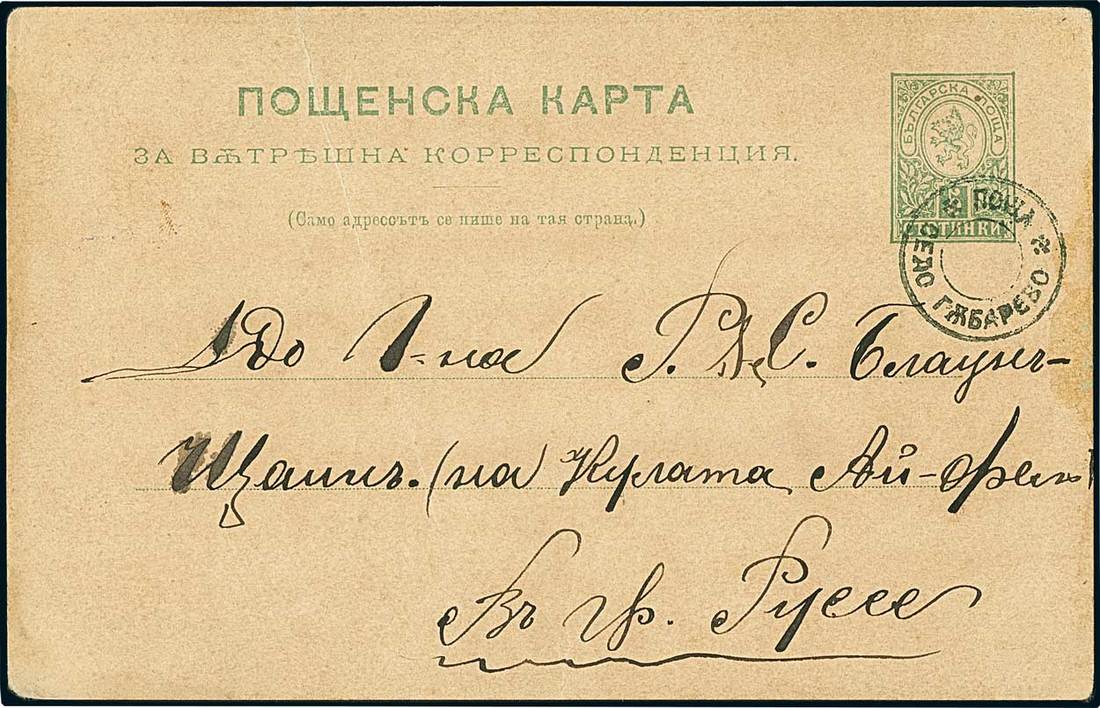 ПОЩЕНСКА КАРТА
ЗА ВѪТРѢШНА КОРРЕСПОНДЕНЦИЯ.
(Само адрессътъ се пише на тая страна.)
БЪЛГАРСКА ПОЩА
5
СТОТИНКИ
ПОЩА
СЕЛО ГѪБАРЕВО
До Г-на Г. Д. С. Блаунъ-
Щаинъ. (на Кулата Ай-фелъ)
Въ гр. Руссе